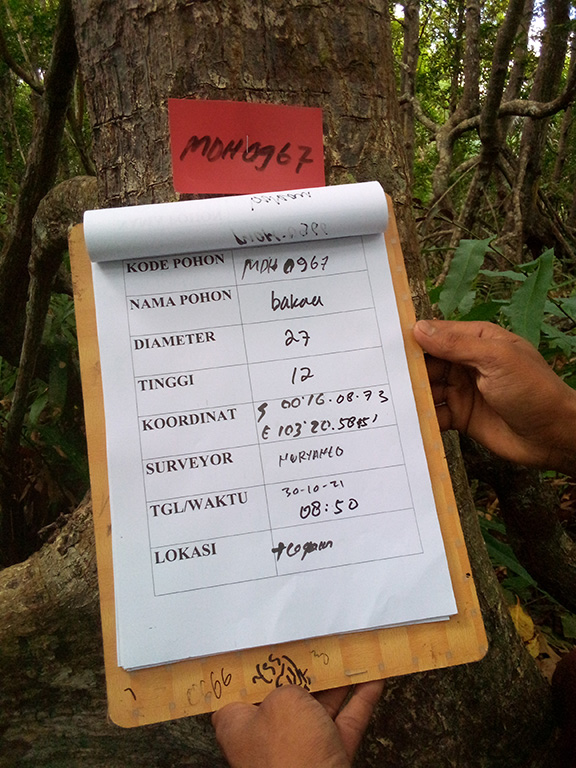 MDH0967
KODE POHON MDH 0967
NAMA POHON bakau
DIAMETER 27
TINGGI 12
KOORDINAT S 00°16.08.73
E 103°20.5845'
SURVEYOR NURYANTO
TGL/WAKTU 30-10-21
08:50
LOKASI